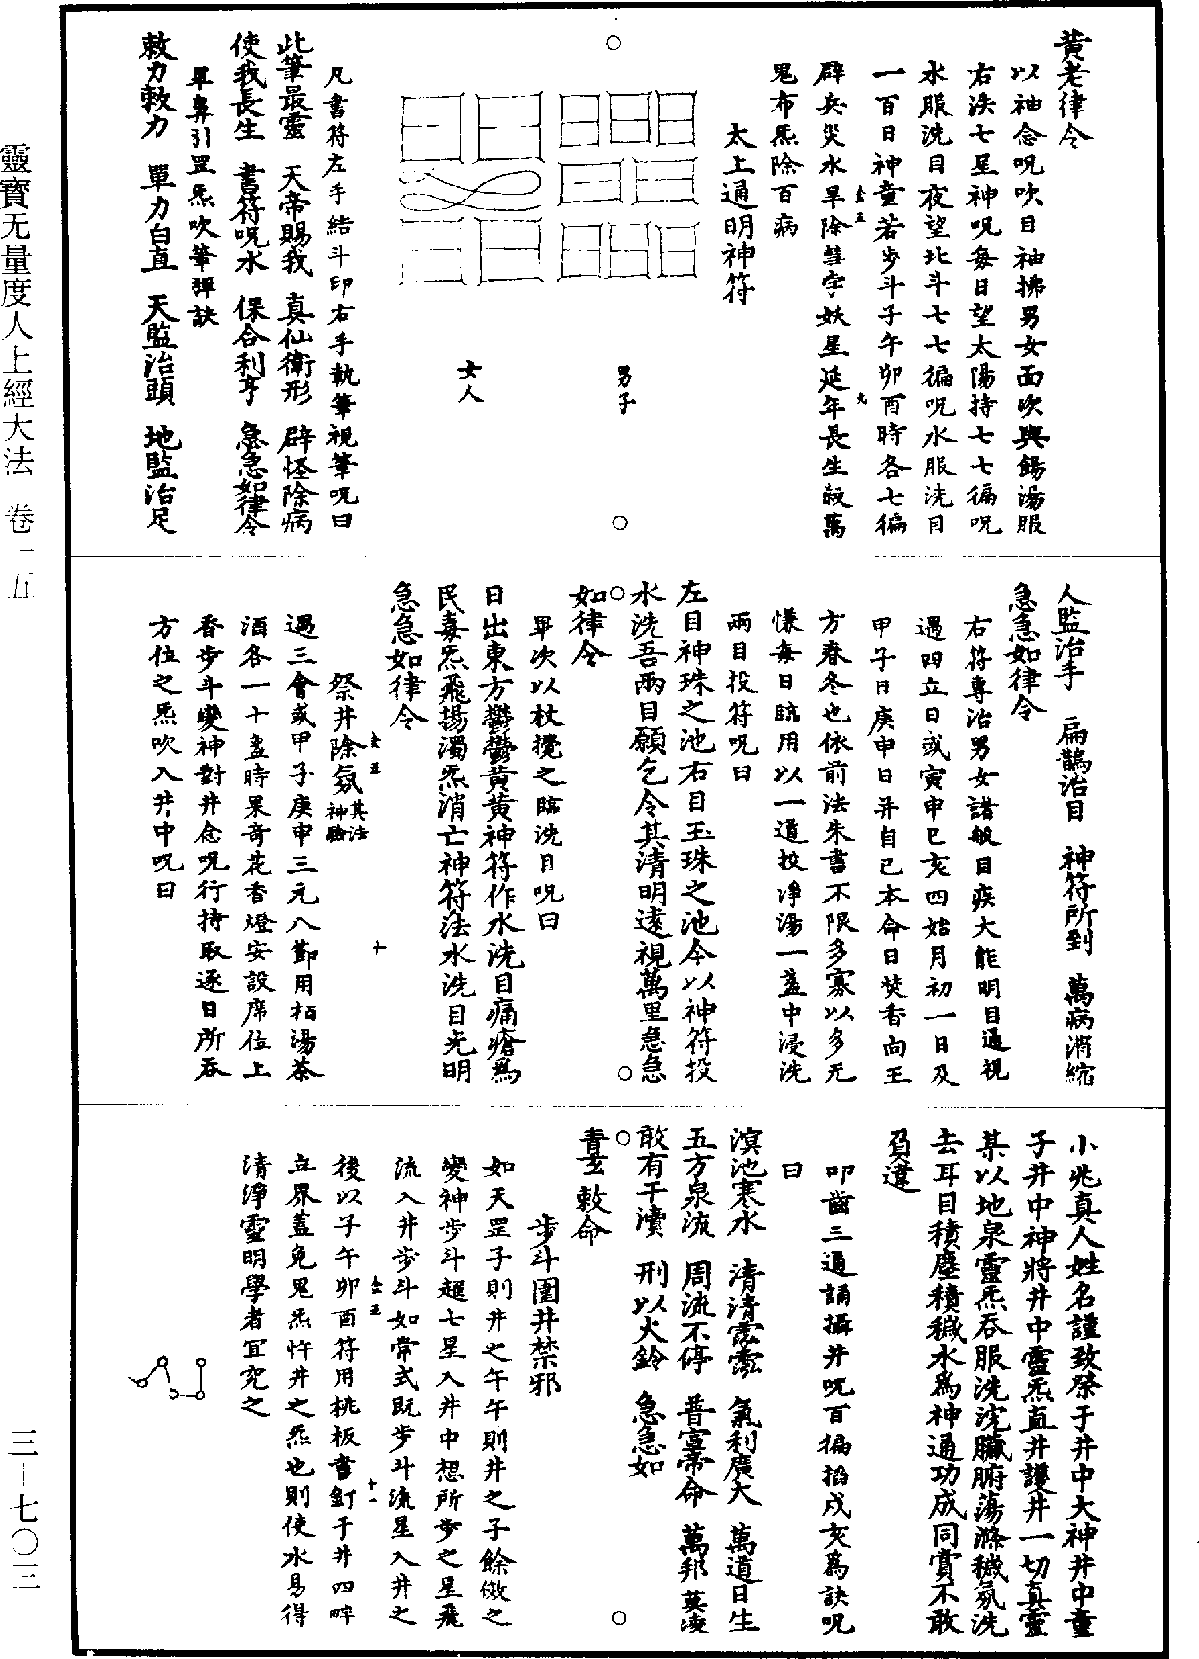 黃老律令
以袖念呪吹目袖拂男女面吹與錫湯服
右法七星神呪每日望太陽持七七徧呪
水服洗目夜望北斗七七徧呪水服洗目
一百日神童若步斗子午卯酉時各七徧
辟兵災水旱除彗孛妖星延年長生殺萬
鬼布炁除百病
太上通明神符
男子
女人
凡書符左手結斗印右手執筆視筆呪曰
此筆最靈 天帝賜我 真仙衛形 辟怪除病
使我長生 書符呪水 保合利亨 急急如律令
畢鼻引罡炁吹筆彈訣
敕力敕力 單力白直 天監治頭 地監治足
人監治手 扁鵲治目 神符所到 萬病消縮
急急如律令
右符專治男女諸般目疾大能明目通視
遇四立日或寅申巳亥四始月初一日及
甲子日庚申日并自己本命日焚香向王
方春冬也依前法朱書不限多寡以多无
慊每日臨用以一道投淨湯一盞中浸洗
兩目投符呪曰
左目神珠之池右目玉珠之池今以神符投
水洗吾兩目願乞令其清明遠視萬里急急
如律令
畢次以杖攪之臨洗目呪曰
日出東方鬱鬱黃黃神符作水洗目痛瘡爲
民毒炁飛揚濁炁消亡神符法水洗目光明
急急如律令
祭井除氛其法神驗
遇三會或甲子庚申三元八節用栢湯茶
酒各一十盞時果奇花香燈安設席位上
香步斗變神對井念呪行持取逐日所吞
方位之炁吹入井中呪曰
小兆真人姓名謹致祭于井中大神井中童
子井中神將井中靈炁直井護井一切真靈
某以地泉靈炁吞服洗浣臟腑蕩滌穢氛洗
去耳目積塵積穢水爲神通功成同賞不敢
負違
叩齒三通誦攝井呪百徧掐戌亥爲訣呪
曰
溟池寒水 清清霐霐 氣利廣大 萬道日生
五方泉流 周流不停 普宣帝命 萬邦莫凌
敢有干瀆 刑以火鈴 急急如
青玄敕命
步斗圍井禁邪
如天罡子則井之午午則井之子餘倣之
變神步斗躡七星入井中想所步之星飛
流入井步斗如常式既步斗流星入井之
後以子午卯酉符用桃板書釘于井四畔
立界蓋免鬼炁忤井之炁也則使水易得
清淨靈明學者宜究之
靈寶无量度人上經大法 卷十五
三－七〇三